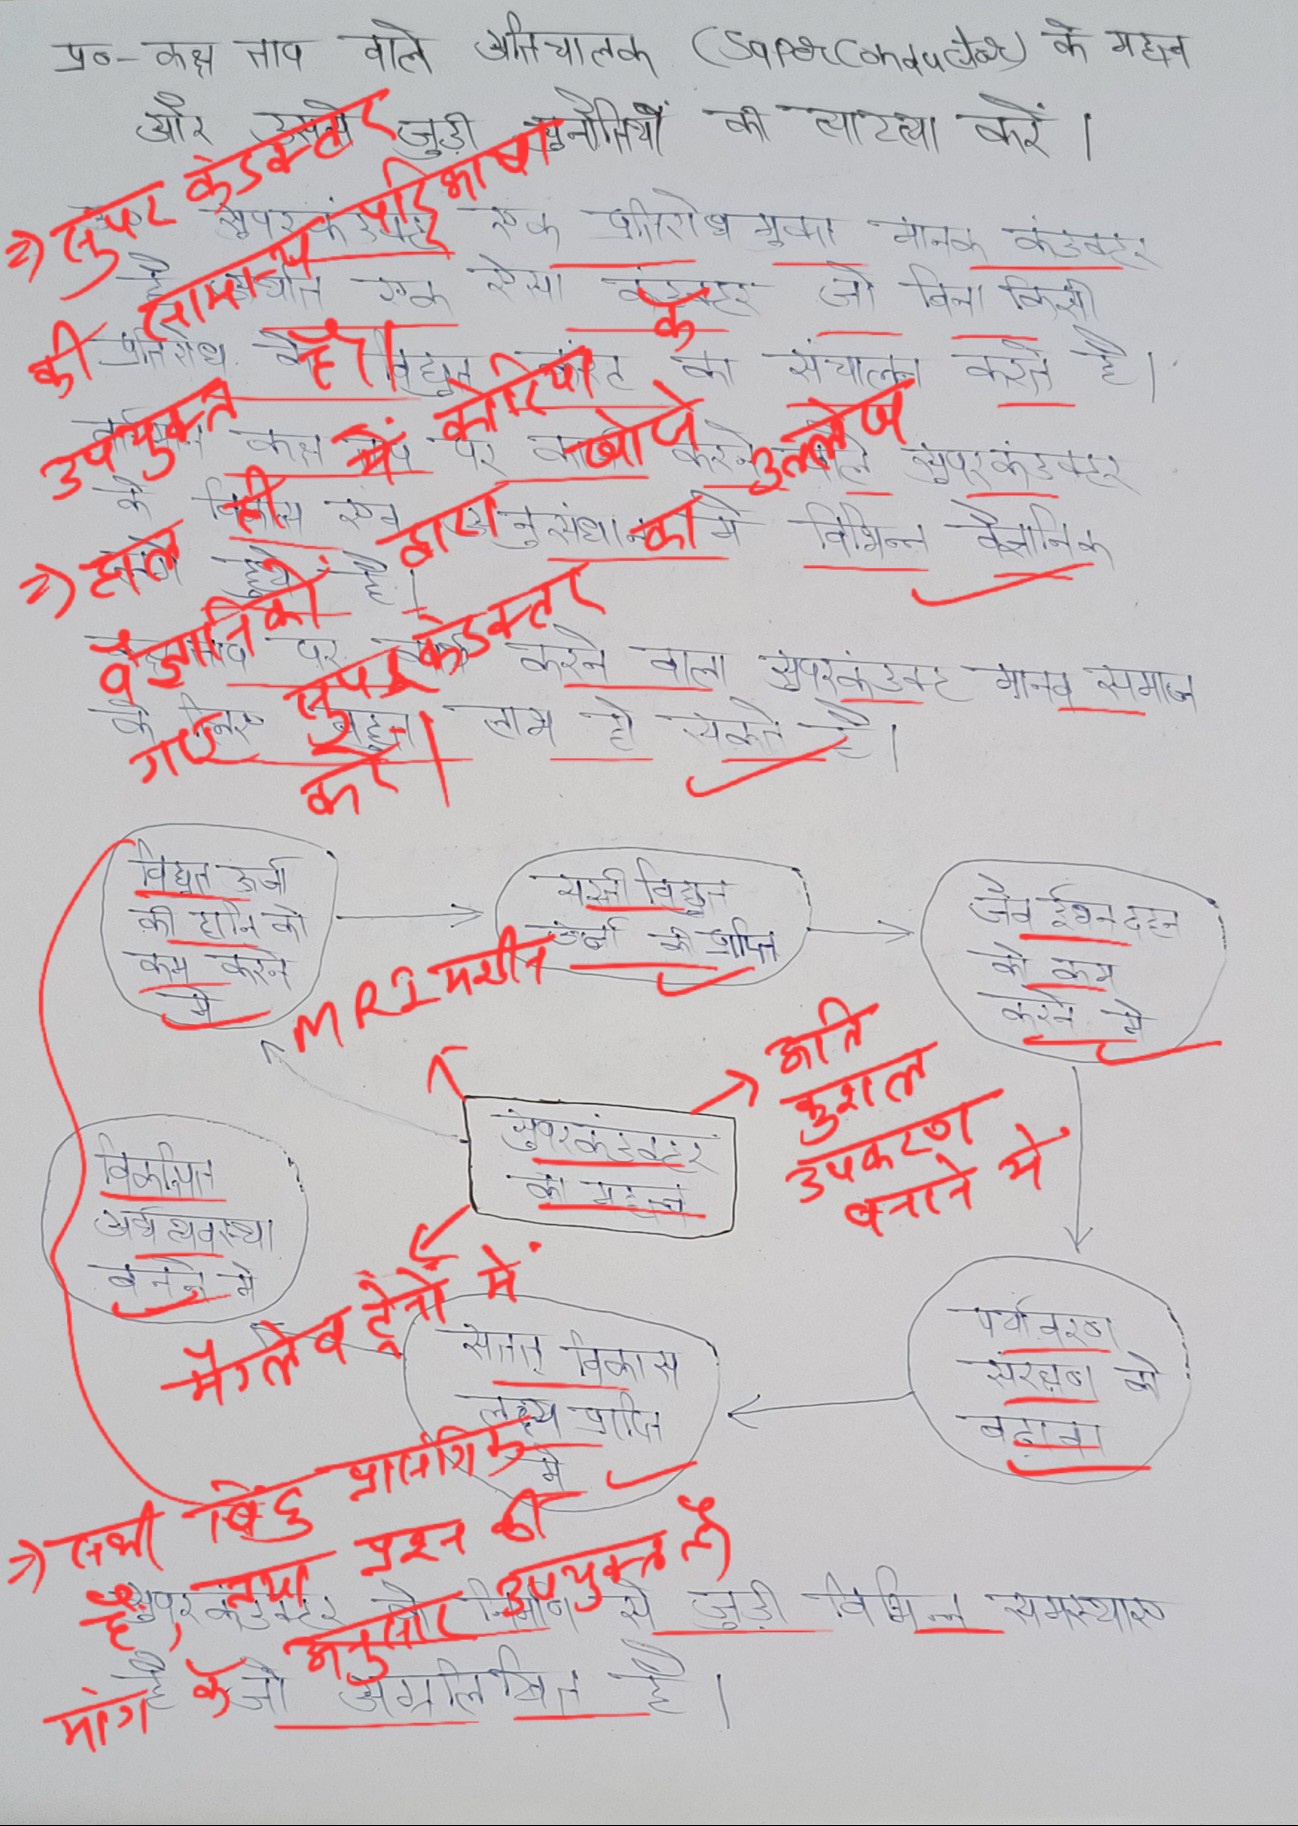 प्र०- कक्ष ताप वाले अतिचालक (Superconductor) के महत्व
और उससे जुड़ी चुनौतियों की व्याख्या करें।
सुपरकंडक्टर एक प्रतिरोध मुक्त मानक कंडक्टर
है अर्थात एक ऐसा कंडक्टर जो बिना किसी
प्रतिरोध के विद्युत करंट का संचालन करते है।
कक्ष ताप पर कार्य करने वाले सुपरकंडक्टर
के विकास एवं अनुसंधान में विभिन्न वैज्ञानिक
लगे हुये है।
कक्ष ताप पर कार्य करने वाला सुपरकंडक्ट मानव समाज
के लिए बहुत लाभ हो सकते है।
=> सुपर कंडक्टर
की सामान्य परिभाषा
उपयुक्त है।
=> हाल ही में कोरिया के
वैज्ञानिकों द्वारा खोजे
गए सुपर कंडक्टर का उल्लेख
करें।
विद्युत ऊर्जा
की हानि को
कम करने
में
सस्ती विद्युत
ऊर्जा की प्राप्ति
जैव ईंधन दहन
को कम
करने में
MRI मशीन
अति
कुशल
उपकरण
बनाने में
सुपरकंडक्टर
का महत्व
विकसित
अर्थव्यवस्था
बनने में
मैग्लेव ट्रेनों में
सतत् विकास
लक्ष्य प्राप्ति
में
पर्यावरण
संरक्षण को
बढ़ावा
=> सभी बिंदु प्रासंगिक
हैं, तथा प्रश्न की
मांग के अनुसार उपयुक्त है)
सुपरकंडक्टर के निर्माण से जुड़ी विभिन्न समस्याए
है जो अग्रलिखित है।